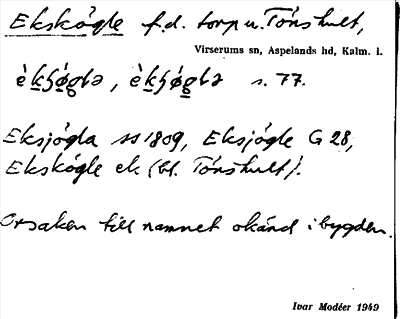 Ekskögle f.d. torp u. Tönshult,
Virserums sn, Aspelands hd, Kalm. l.
s. 77.
Eksjögla ss 1809, Eksjögle G 28,
Ekskögle ek (bl. Tönshult).
Orsaken till namnet okänd i bygden.
Ivar Modéer 1949